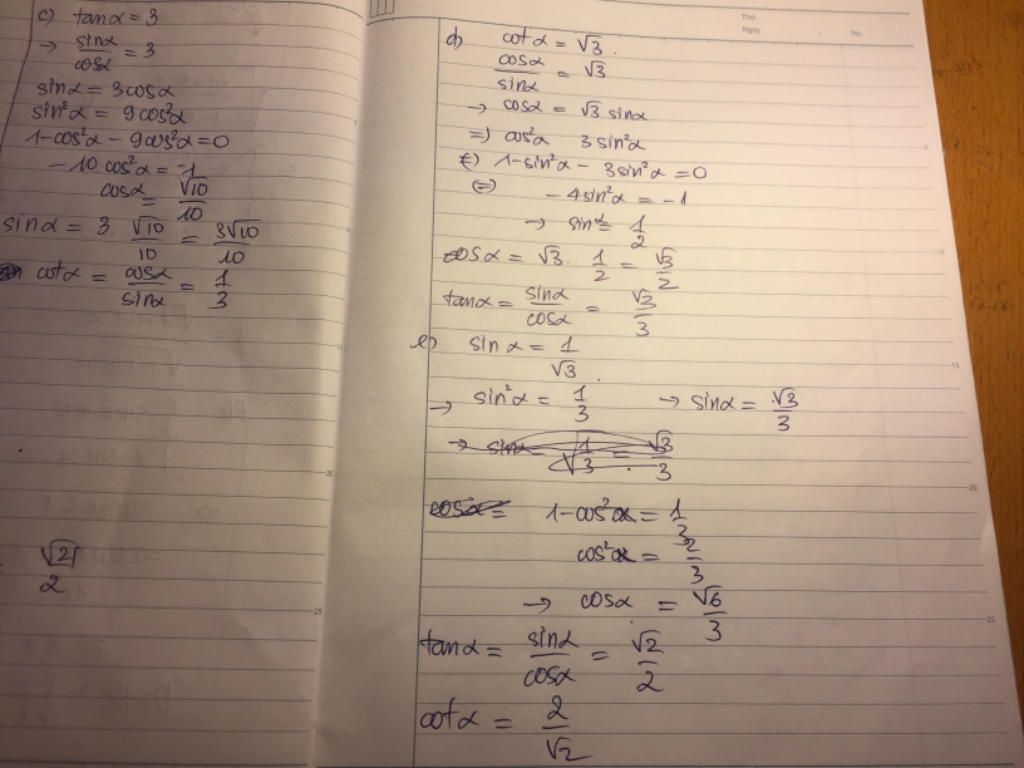 c) tanα = 3
→ sinα/cosα = 3
sinα = 3cosα
sin²α = 9cos²α
1-cos²α - 9cos²α = 0
-10cos²α = -1
cosα = √10/10
sinα = 3. √10/10 = 3√10/10
cotα = cosα/sinα = 1/3
√2/2
Thứ
Ngày No.
d) cotα = √3.
cosα/sinα = √3
→ cosα = √3 sinα
=) cos²α 3sin²α
1-sin²α - 3sin²α = 0
(=) -4sin²α = -1
→ sinα = 1/2
cosα = √3. 1/2 = √3/2
tanα = sinα/cosα = √3/3
e) sinα = 1/√3.
→ sin²α = 1/3 → sinα = √3/3
→ sinα = √1/3 = √3/3
cosα = 1-cos²α = 1/3
cos²α = 2/3
→ cosα = √6/3
tanα = sinα/cosα = √2/2
cotα = 2/√2
5
10
15
20
25